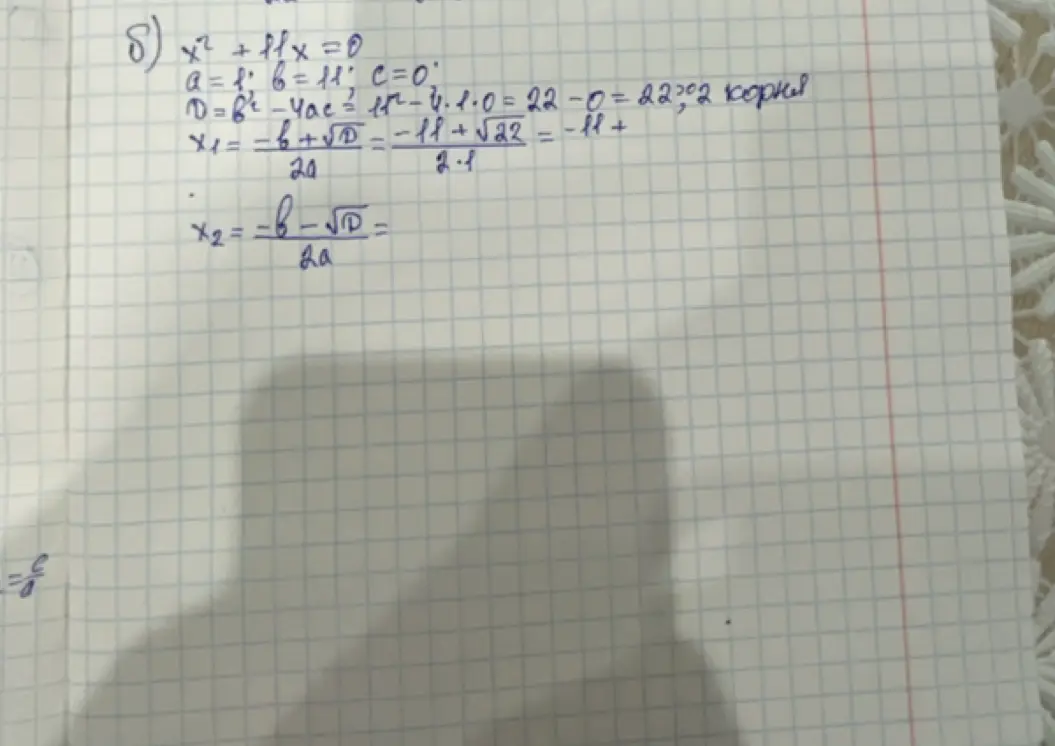 б) x² + 11x = 0
a = 1; b = 11; c = 0;
D = b² - 4ac = 11² - 4·1·0 = 22 - 0 = 22>0; 2 корня
x₁ = -b + √D / 2a = -11 + √22 / 2·1 = -11 +
x₂ = -b - √D / 2a =
= c/a